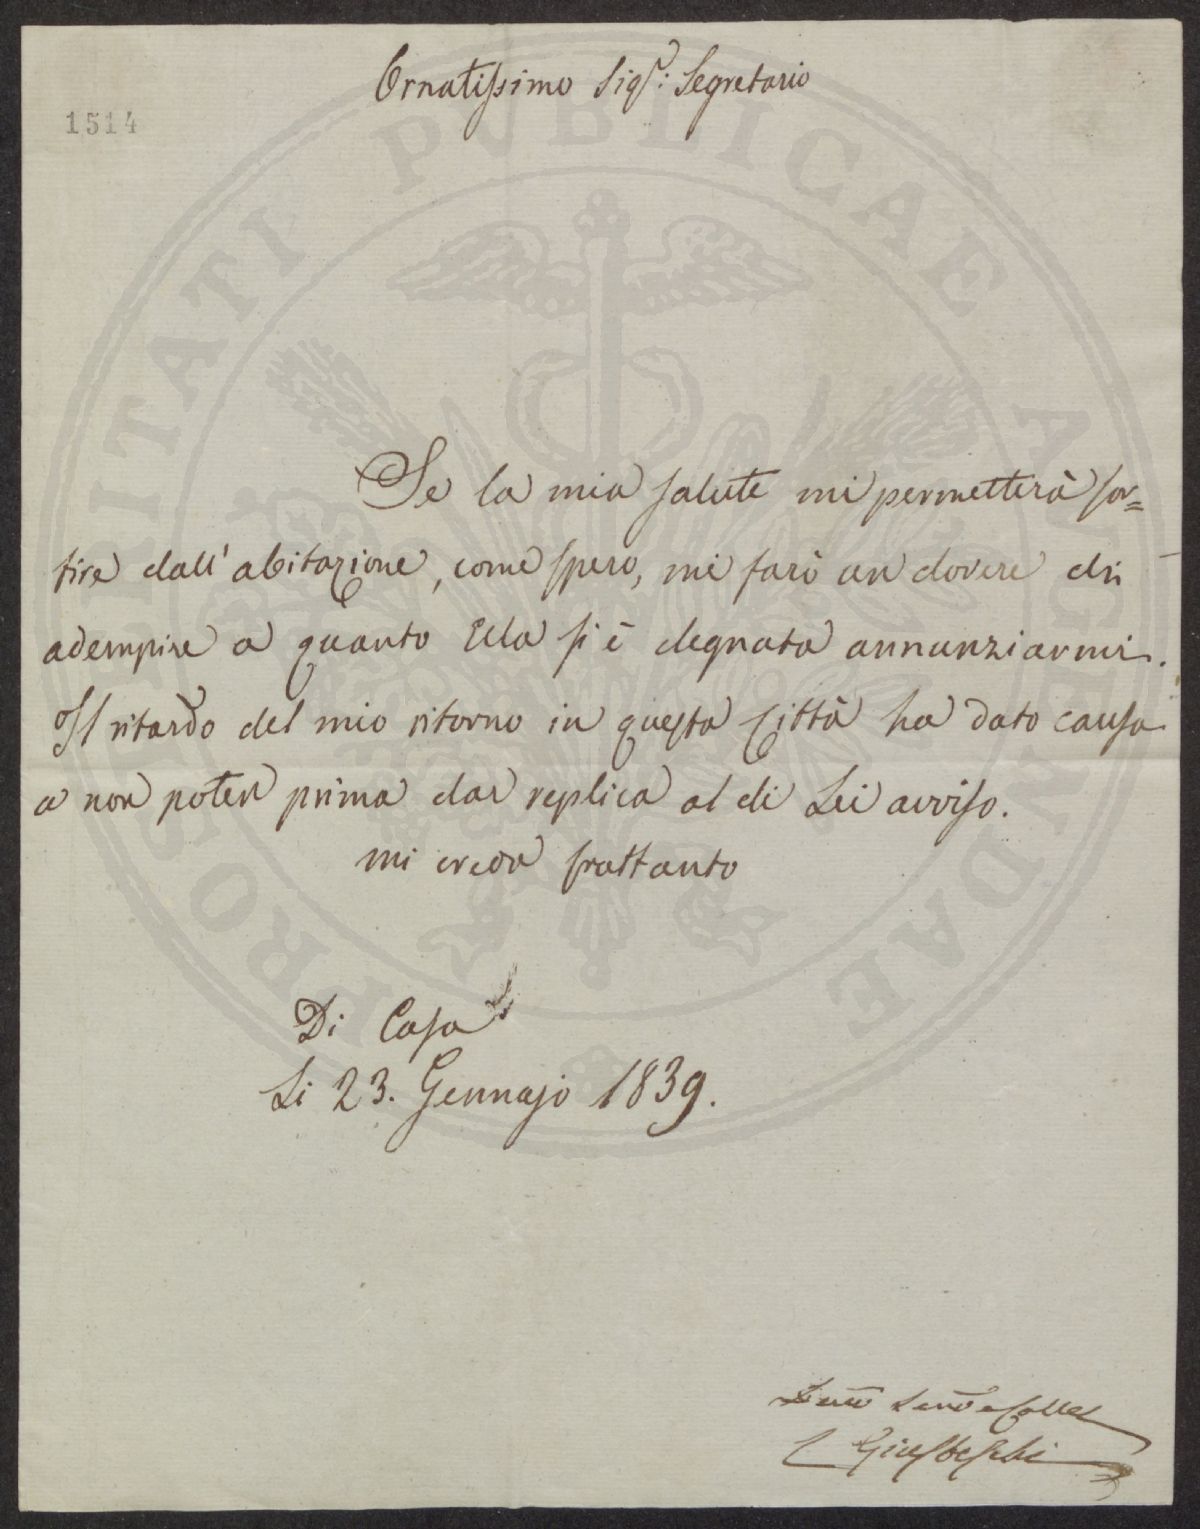 Ornatissimo Sigr: Segretario
1514
Se la mia salute mi permetterà sor=
tire dall'abitazione, come spero, mi farò un dovere di
adempire a quanto Ella si è degnata annunziarmi.
Il ritardo del mio ritorno in questa Città ha dato causa
a non poter prima dar replica al di Lei avviso.
mi creda frattanto
Di Casa
Li 23. Gennajo 1839.
PROSPERITATI PUBLICAE AUGENDAE